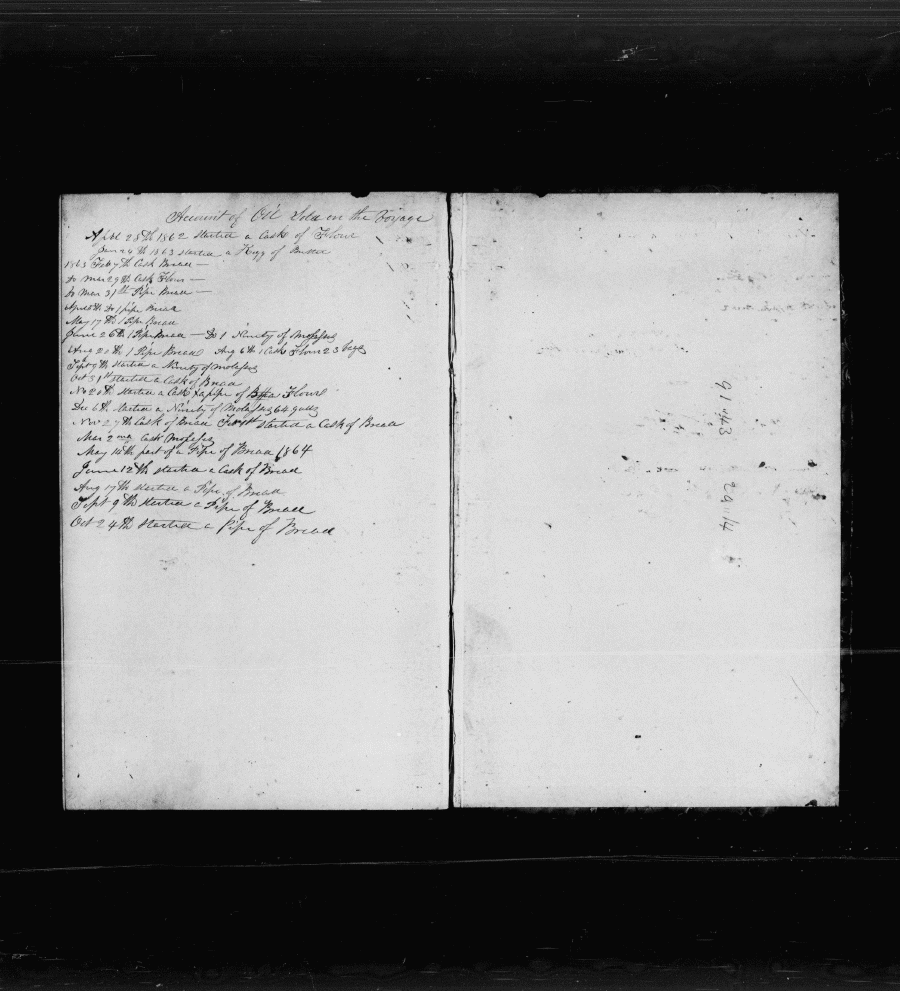 Account of Oil Sold on the Voyage
Aprl 28th 1862 started a Cask of Flour
Jan 24th 1863 started a Kegg of Butter
1863 Feb 7th Cask Bread —
Do Mar 29th Cask Flour —
Do Mar 31th Pipe Bread —
April 8th Do 1 pipe Bread
May 17th 1 Pipe Bread
June 26th 1 Pipe Bread — Do 1 Ninety of Molasses
Aug 20th 1 Pipe Bread Aug 6th 1 Cask Flour 23
Sept 9th started a Ninety of molasses
Oct 31st started a Cask of Bread
No 20th started a Cask pipe of Flour
Dec 6th started a Ninety of Molasses 64 galls
Nov 27th Cask of Bread Feb started a Cask of Bread
Mar 2nd Cask Molasses
May 18th part of a Pipe of Bread 1864
June 12th started a Cask of Bread
Aug 17th started a Pipe of Bread
Sept 9th started a Pipe of Bread
Oct 24th started a Pipe of Bread